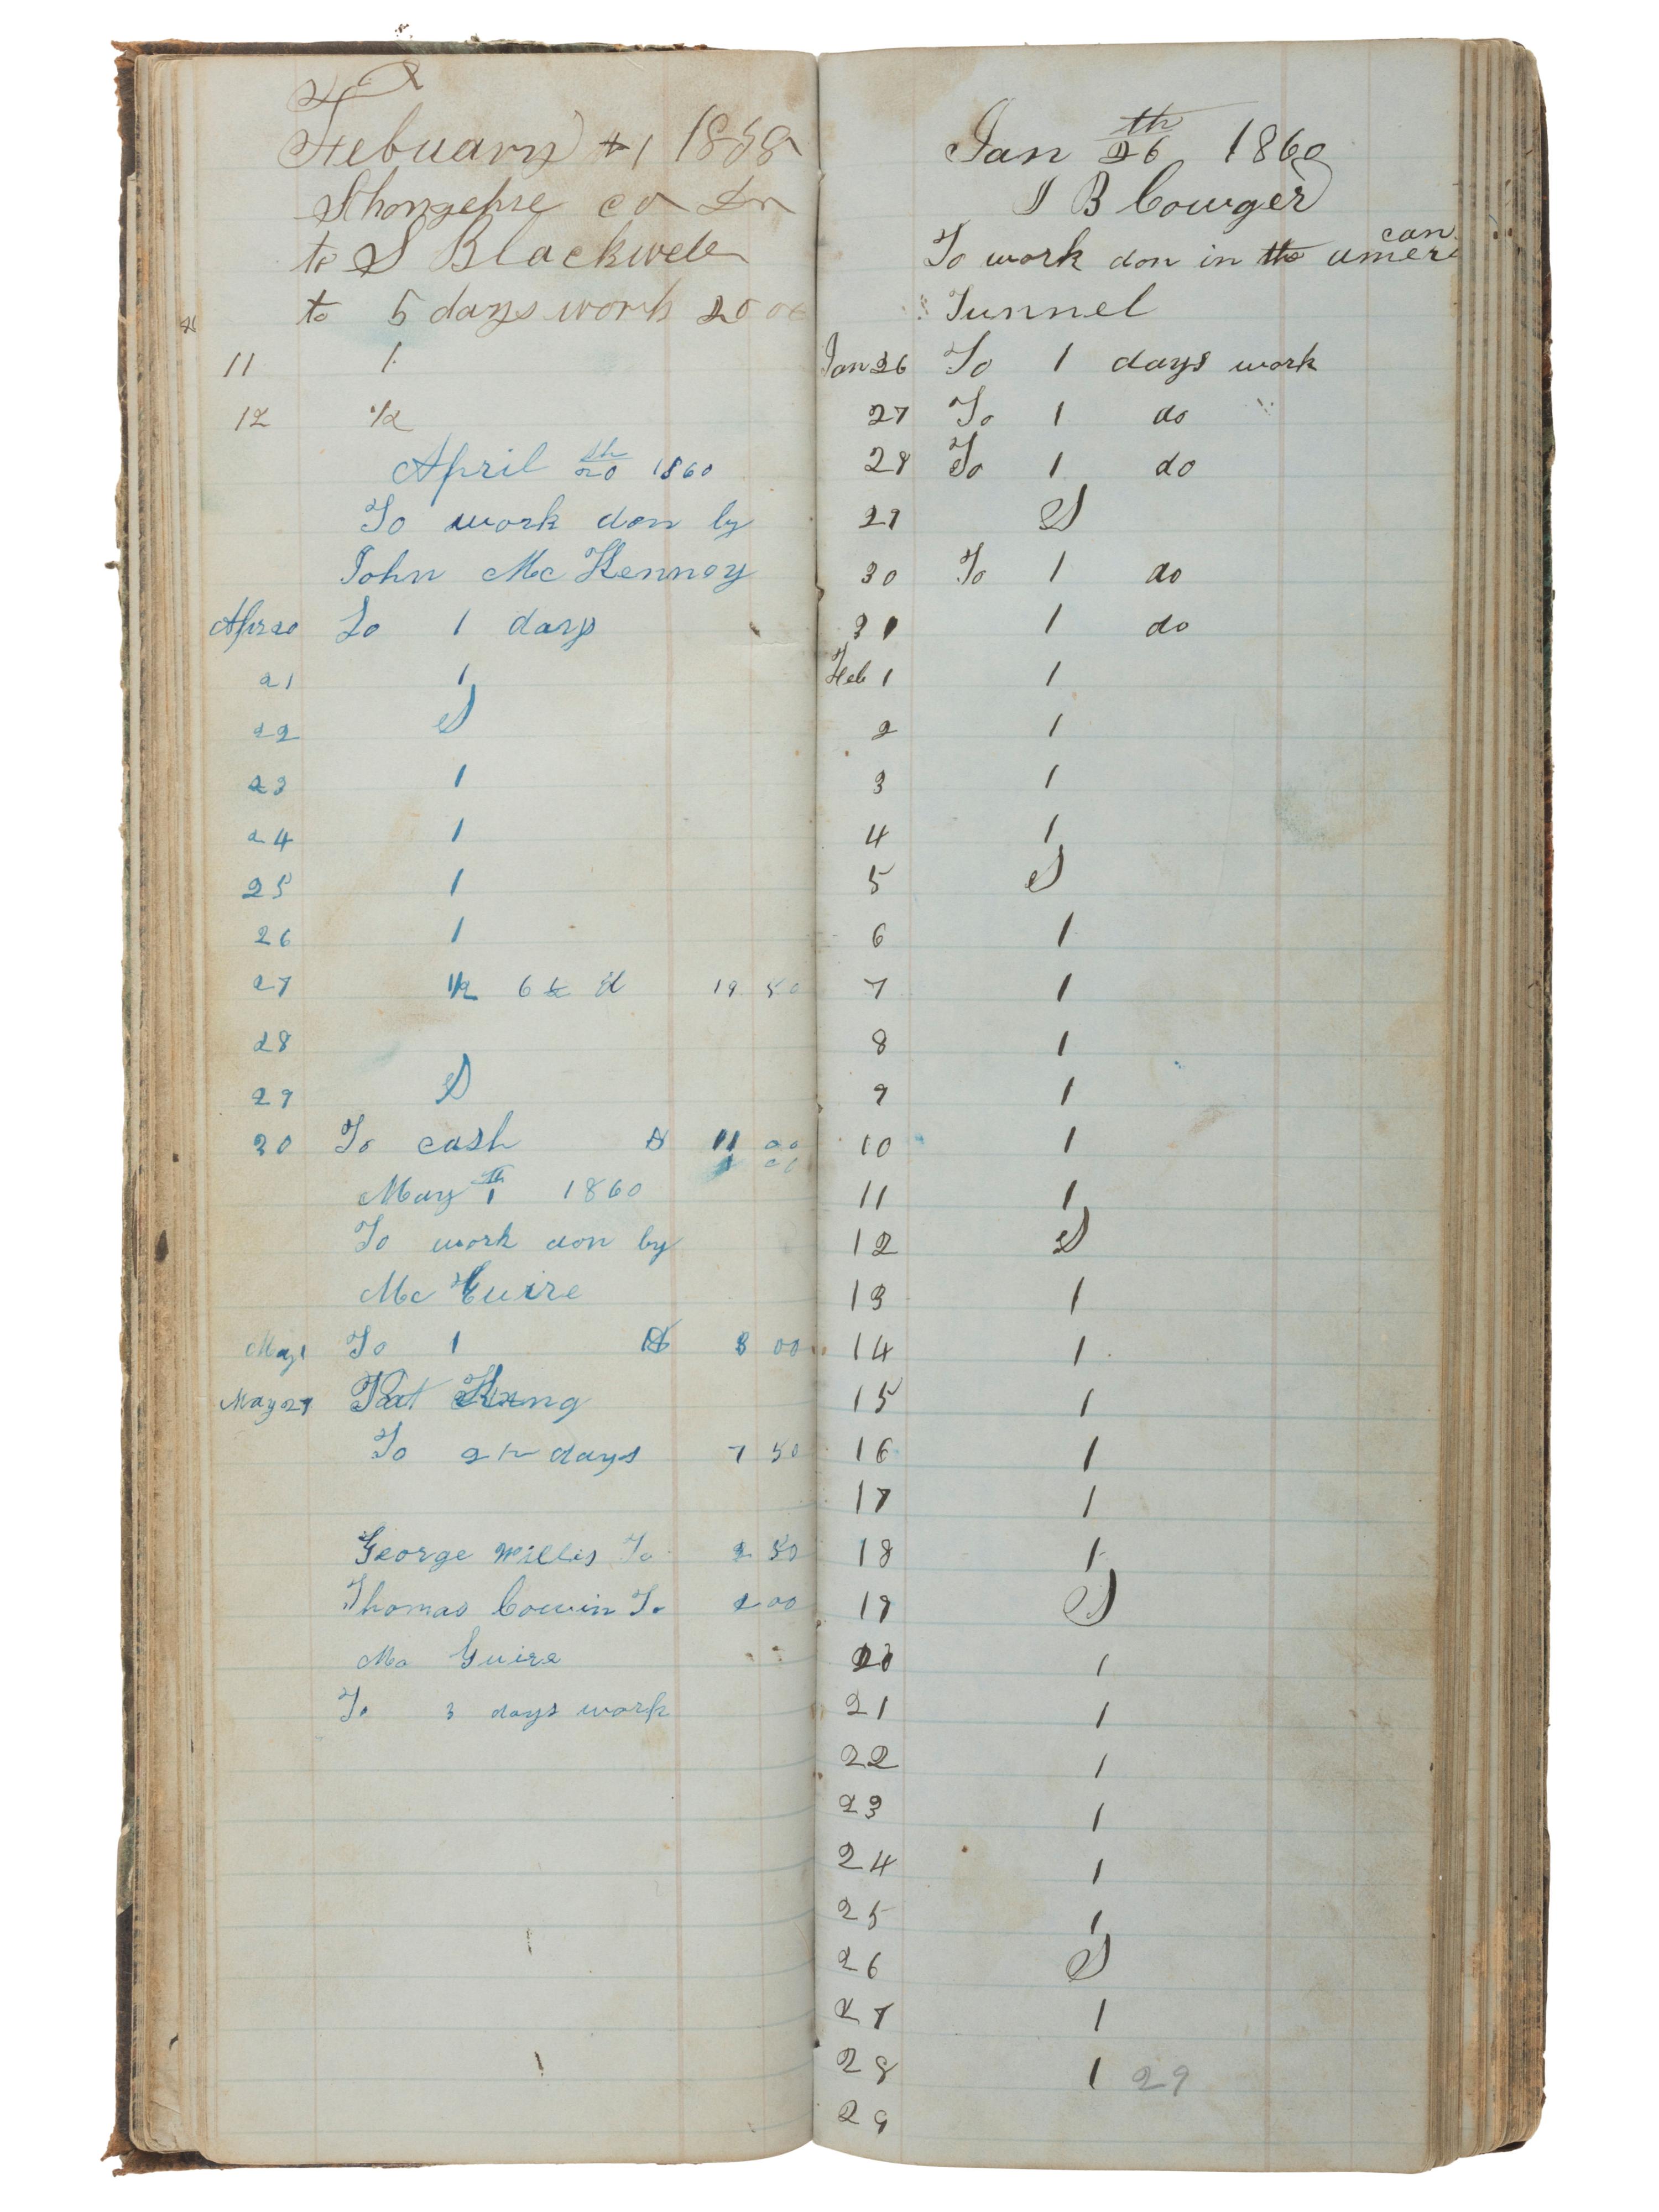 Febuary 1 1858
co Dr
to S Blackwell
to 5 days work 20 00
11 1
12 1/2
April 20th 1860
To work don by
John Mc Kenney
Apr 20 To 1 days
21 1
22 S
23 1
24 1
25 1
26 1
27 1/2 6 1/2 d 19 50
28
29 S
30 To cash $ 11 00
May 1th 1860
To work don by
Mc Guire
May 1 To 1 $ 3 00
May 29 Pat King
To 2 1/2 days 7 50
George Willis To 2 50
Thomas Cowin To 2 00
Mc Guire
To 3 days work
Jan 26th 1860
J B Cowger
To work don in the american
Tunnel
Jan 26 To 1 days work
27 To 1 do
28 To 1 do
29 S
30 To 1 do
31 1 do
Feb 1 1
2 1
3 1
4 1
5 S
6 1
7 1
8 1
9 1
10 1
11 1
12 S
13 1
14 1
15 1
16 1
17 1
18 1
19 S
20 1
21 1
22 1
23 1
24 1
25 1
26 S
27 1
28 1 29
29